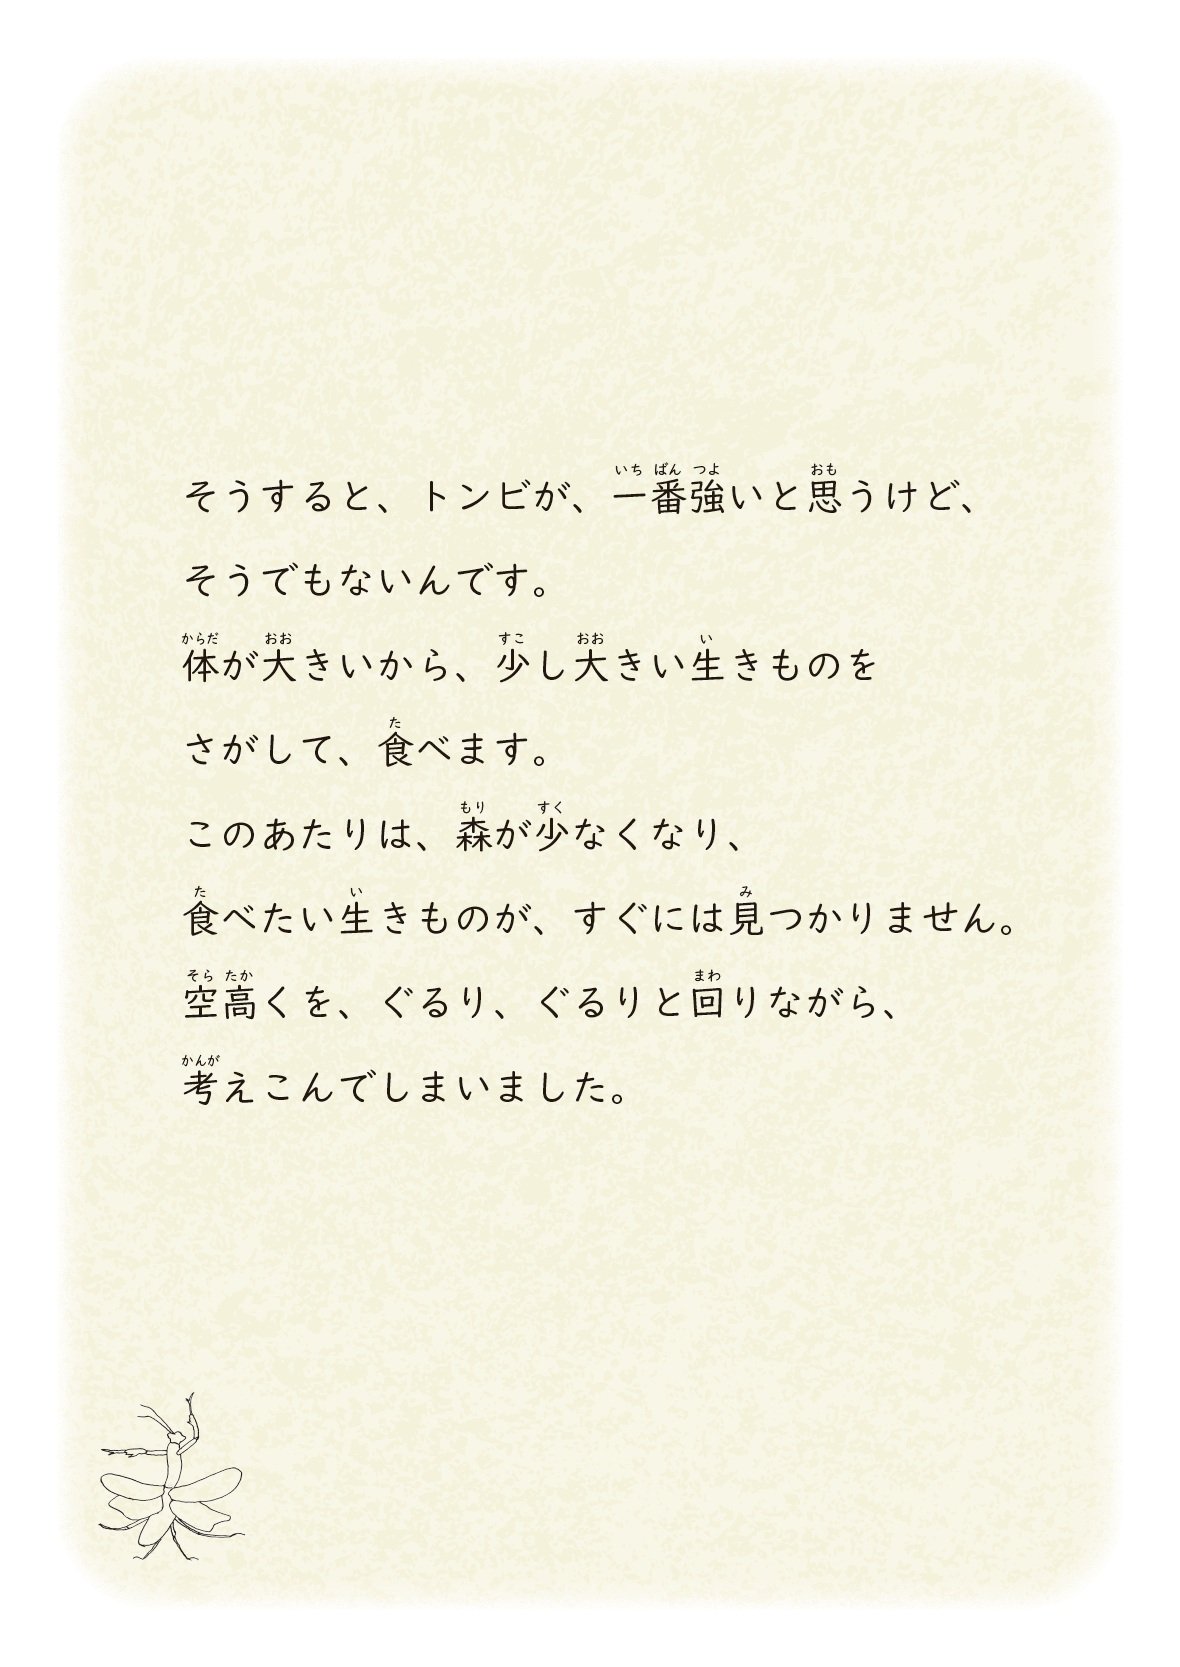 そうすると、トンビが、一番強いと思うけど、
そうでもないんです。
体が大きいから、少し大きい生きものを
さがして、食べます。
このあたりは、森が少なくなり、
食べたい生きものが、すぐには見つかりません。
空高くを、ぐるり、ぐるりと回りながら、
考えこんでしまいました。